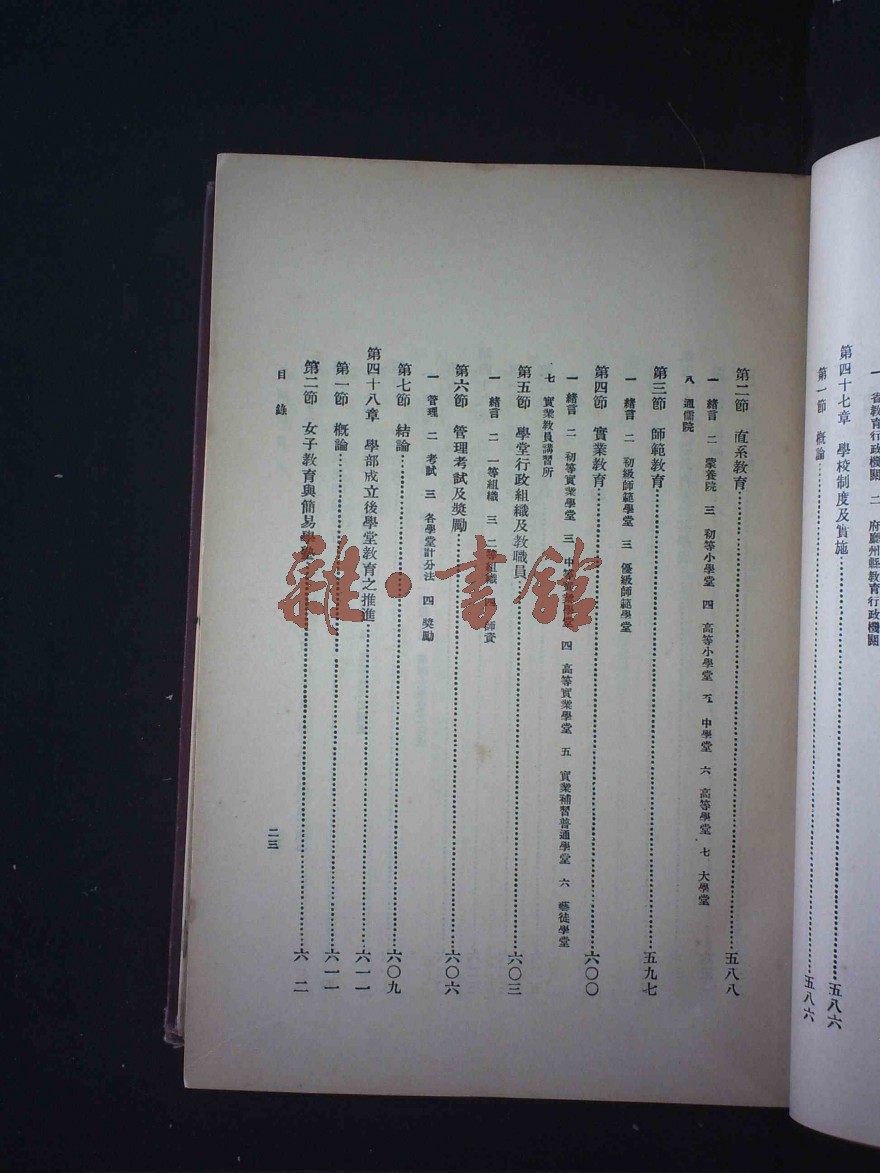 一 省教育行政機關 二 府廳州縣教育行政機關
第四十七章 學校制度及實施……五八六
第一節 概論……五八六
第二節 直系教育……五八八
一 緒言 二 蒙養院 三 初等小學堂 四 高等小學堂 五 中學堂 六 高等學堂 七 大學堂
八 通儒院
第三節 師範教育……五九七
一 緒言 二 初級師範學堂 三 優級師範學堂
第四節 實業教育……六〇〇
一 緒言 二 初等實業學堂 三 中等實業學堂 四 高等實業學堂 五 實業補習普通學堂 六 藝徒學堂
七 實業教員講習所
第五節 學堂行政組織及教職員……六〇三
一 緒言 二 一等組織 三 二等組織 四 師資
第六節 管理考試及獎勵……六〇六
一 管理 二 考試 三 各學堂計分法 四 獎勵
第七節 結論……六〇九
第四十八章 學部成立後學堂教育之推進……六一一
第一節 概論……六一一
第二節 女子教育與簡易學……六 二
目錄
二三
雜·書館